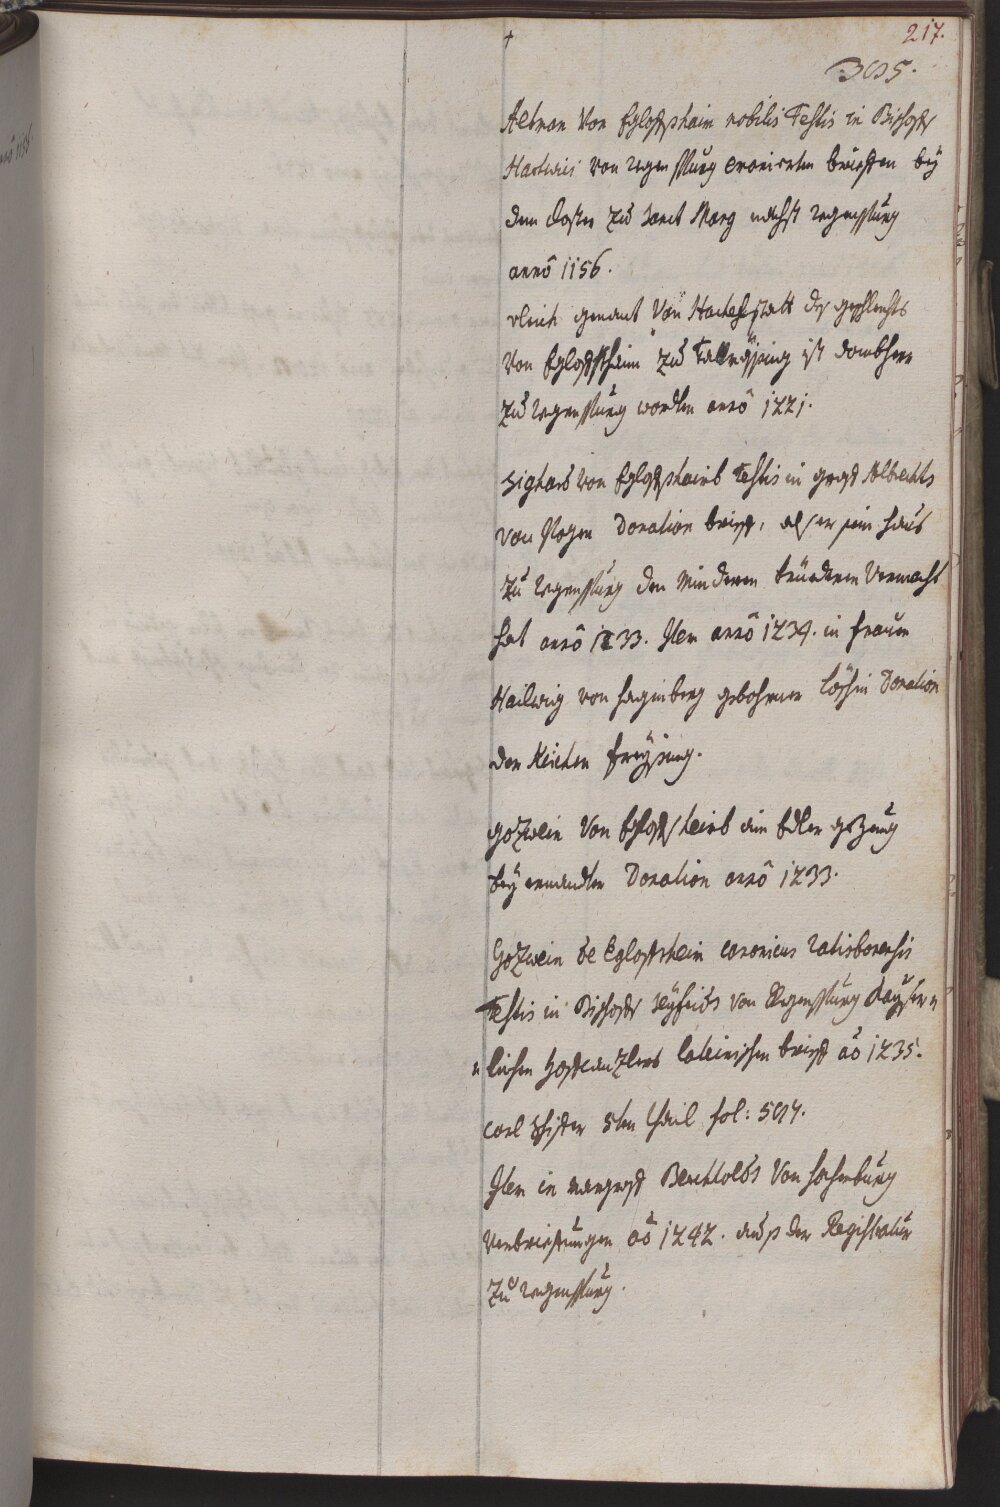 217.
305.
Altman Von Egloffshaim nobilis Testis in Bischoff
Hartwici von Regenspurg brieffen bey
dem Closter zu Sanct nächst Regenspurg
annô 1156.
Ulrich genant Von Hachelstatt deß geschlechts
Von Egloffshaim zu ist dombherr
zu Regenspurg worden annô 1221.
Sighard von Egloffshaimb Testis in graff Albrechts
von Pogen Donation brieff, als er sein Haus
zu Regenspurg den Minderen brüederen Vermacht
hat annô 1233. Item annô 1234. in frauen
Hailwig von Hagenberg gebohrner Donation
der Kirchen Freysing.
Gozwein Von Egloffshaimb ein Edler gezeug
bey ermelter Donation annô 1233.
Gozwein de Egloffshaim canonicus Ratisbonensis
Testis in Bischoff Seyfrids von Regenspurg Kayser-
lichen Hoffcanzlers lateinischen brieff aô 1235.
5ten thail fol:
Item in marggraff Berchtolds Von Hochenburg
Verbrieffungen aô 1242. aus der Registratur
zu Regenspurg.